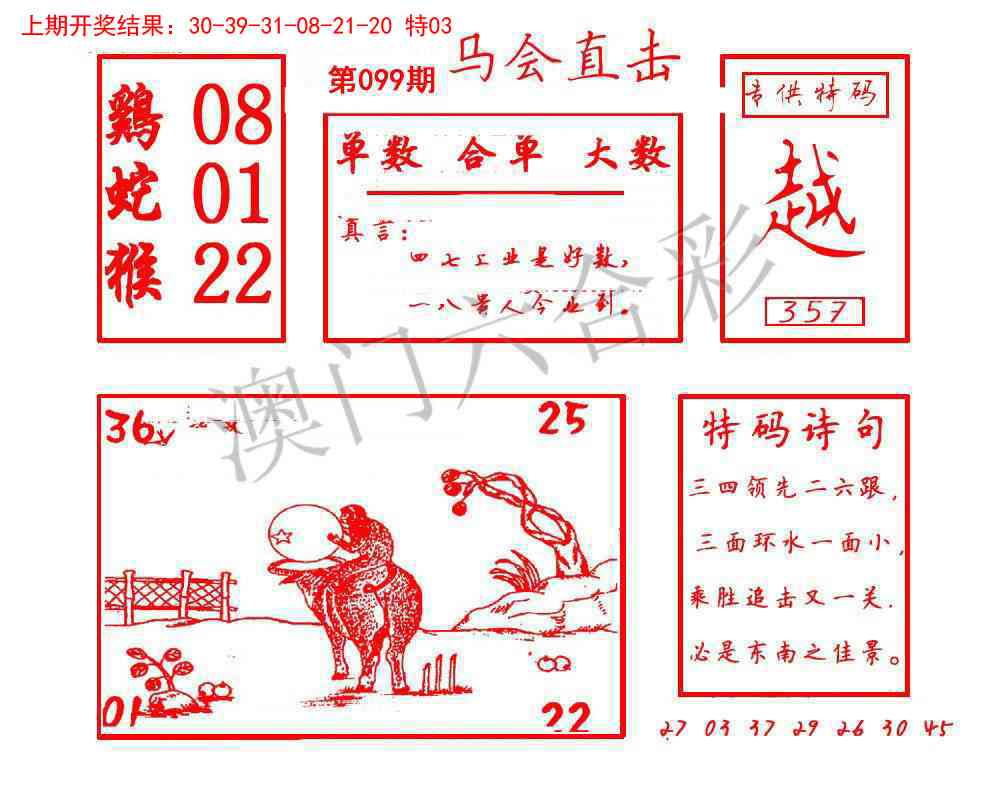 上期开奖结果：30-39-31-08-21-20 特03
第099期 马会直击
鷄 08
蛇 01
猴 22
单数 合单 大数
真言：
四七工业是好数，
一八贵人今业到。
专供特码
越
357
澳门六合彩
36
25
01
22
特码诗句
三四领先二六跟，
三面环水一面小，
乘胜追击又一关，
必是东南之佳景。
27 03 37 29 26 30 45